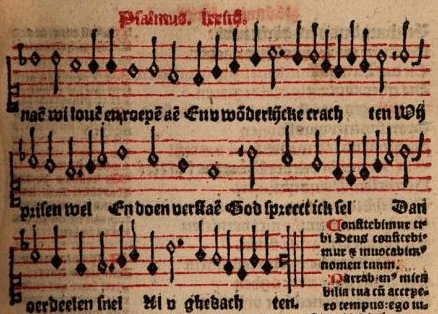 Psalmus. lxxiiij.
naē wi louē en roepē aē En v wōderlijcke crach ten Wij
prisen wel En doen verstaē God spreect ick sel Dan
oerdeelen snel Al v ghedach ten.
Confitebimur ti
bi Deus confitebi
mur & inuocabim⁹
nomen tuum.
Narrabim⁹ mira
bilia tua cū accepe
ro tempus: ego iu